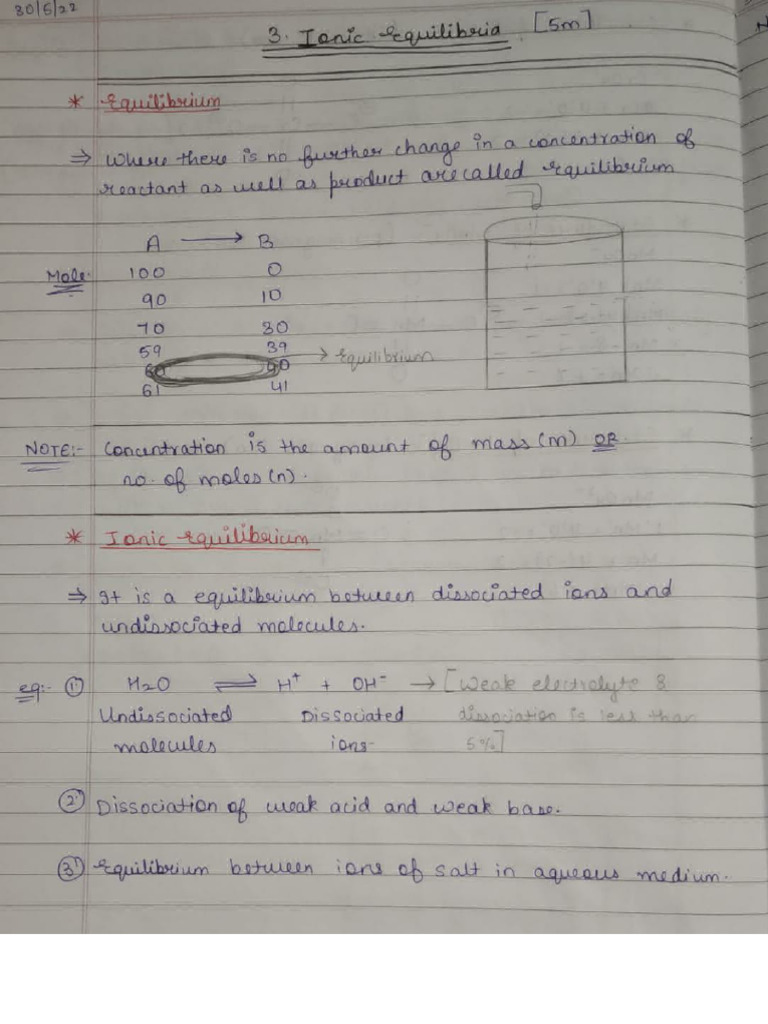 30/5/22
3. Ionic Equilibria [5m]
* Equilibrium
⇒ Where there is no further change in a concentration of
reactant as well as product are called equilibrium
A → B
Mole: 100 0
90 10
70 30
59 39
60 40 → Equilibrium
61 41
NOTE:- Concentration is the amount of mass (m) OR
no. of moles (n).
* Ionic Equilibrium
⇒ It is a equilibrium between dissociated ions and
undissociated molecules.
eg:- ① H2O ⇌ H+ + OH- → [Weak electrolyte &
Undissociated Dissociated dissociation is less than
molecules ions- 5%]
② Dissociation of weak acid and weak base.
③ Equilibrium between ions of salt in aqueous medium.